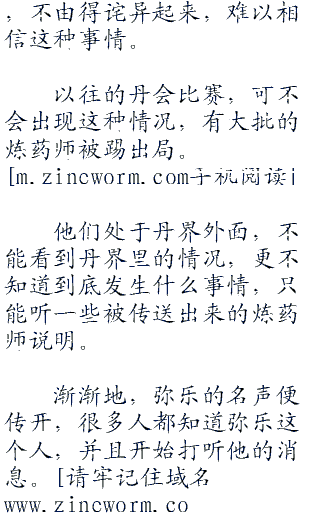 ，不由得诧异起来，难以相
信这种事情。
以往的丹会比赛，可不
会出现这种情况，有大批的
炼药师被踢出局。
[m.zincworm.com手机阅读i
他们处于丹界外面，不
能看到丹界里的情况，更不
知道到底发生什么事情，只
能听一些被传送出来的炼药
师说明。
渐渐地，弥乐的名声便
传开，很多人都知道弥乐这
个人，并且开始打听他的消
息。[请牢记住域名
www.zincworm.co